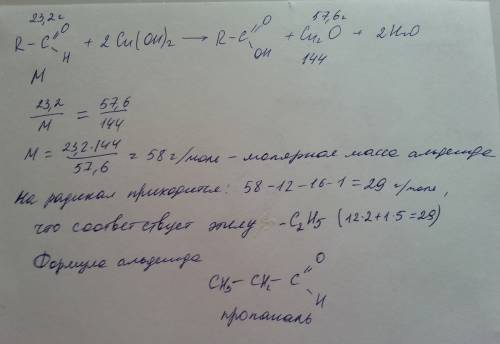 23,2г 57,6г
R-C=O H + 2 Cu(OH)₂ → R-C=O OH + Cu₂O + 2H₂O
M 144
23,2/M = 57,6/144
M = 23,2·144/57,6 = 58 г/моль - молярная масса альдегида
На радикал приходится: 58-12-16-1=29 г/моль,
что соответствует этилу -C₂H₅ (12·2+1·5=29)
Формула альдегида
CH₃-CH₂-C=O H
пропаналь